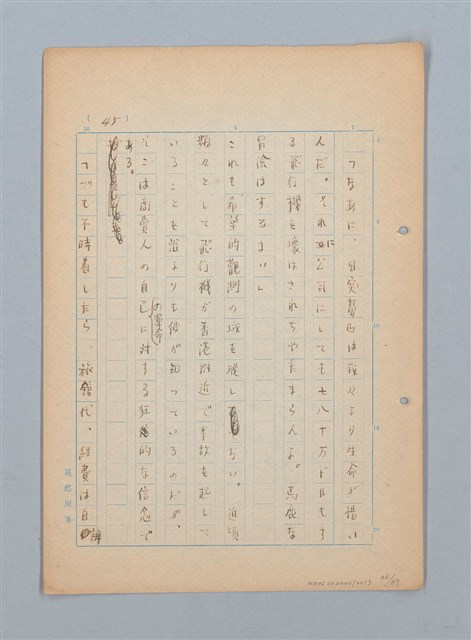 (45)
「なあに、自家製品は我々より生命が惜い
んだ。それに公司にしても七八十万ドルもす
る飛行機を壊はされちやたまらんよ。馬鹿な
冒険はするまい」
これも希望的観測の域を脱しない。近頃
頻々として飛行機が香港附近で事故を起して
いることも誰よりも彼が知っているのだが。
そこは商売人の自己の運命に対する狂的な信念で
ある。
でも不時着したら、旅館代、経費は自弁
20
15
10
5
1
原稿用箋
46/49